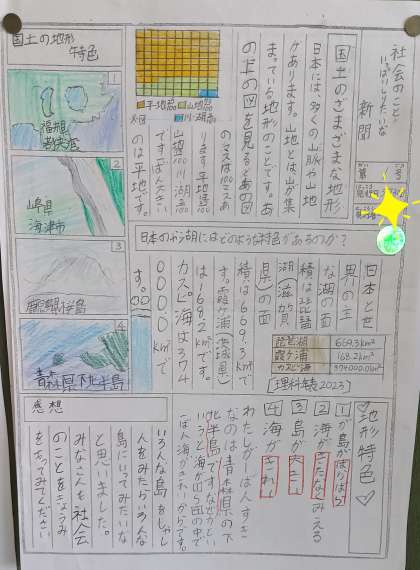 社会のこと
いっぱいしりたいな
新聞
第 号
国土のさまざまな地形
日本には、多くの山脈や山地
があります。山地とは山が集
まっている地形のことです。あ
の上の図を見るとあの図
のマスは100マスあ
ります
平地
山地
川・湖
です。一ばん大きい
のは平地です。
平地
山地
川・湖
国土の地形
特色
1
福根
2
岐阜県
海津市
3
鹿児島桜島
4
青森県下北半島
日本のから湖にはどのような特色があるのか?
日本と世
界の主
な湖の面
積は琵琶
湖(滋賀
県)の面
積は669.3km²で
す。霞ケ浦(茨城県)
は168.2km²です。
カスピ海は374
000.0km²で
す。
琵琶湖 669.3km²
霞ケ浦 168.2km²
カスピ海 374000.0km²
[理科年表2023]
地形特色
1 が島がばらばら
2 海がきたなくみえる
3 島が大きい
4 海がきれい
わたしが一ばんすき
なのは青森県の下
北半島です。なぜかとい
うと海が四つ図の中で
一ばん海がきれいからです。
感想
いろんな島をしゃし
んをみたらいろんな
島にいってみたいな
と思いました。
みなさんも社会
のことをきょうみ
をもってみてください